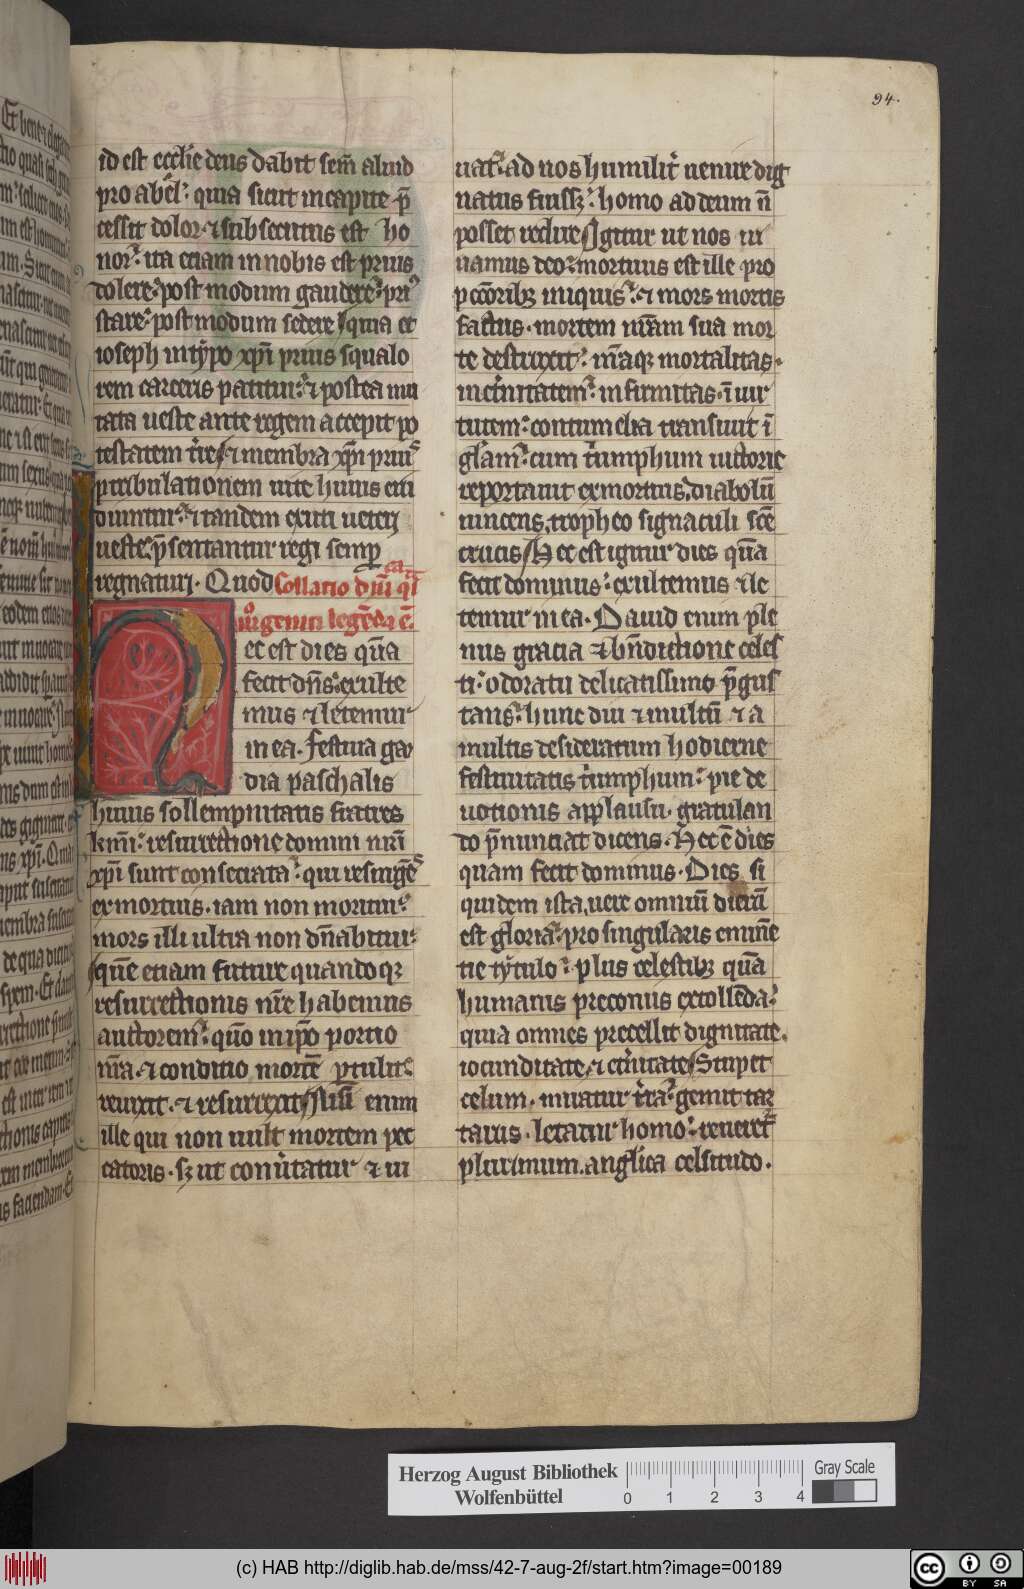 94.
id est eccl̄ie deus dabit sem̄ aliud
pro abel: quia sicut in capite p̄
cessit dolor ⁊ subsecutus est ho
nor: ita etiam in nobis est prius
dolere: post modum gaudere: pri
stare: post modum sedere quia et
ioseph in tẏpo xp̄i prius squalo
rem carceris patitur: ⁊ postea mu
tata ueste ante regem accepit po
testatem ⁊ membra xp̄i prius
p tribulationem uite huius
⁊ tandem exuti ueteri
ueste p̄sentantur regi semp
regnaturi. Quod Collatio
ec est dies quā
fecit dn̄s: exulte
mus ⁊ letemur
in ea. festiua gau
dia paschalis
huius sollempnitatis fratres
km̄i: resurrectione domini nr̄i
xp̄i sunt consecrata: qui resurgēs
ex mortuis. iam non moritur:
mors illi ultra non dn̄abitur:
quē etiam future quandoq
resurrectionis nr̄e habemus
auctorem: quō in ip̄o portio
nr̄a. ⁊ conditio mortē ptulit:
reuixit. ⁊ resurrexit enim
ille qui non uult mortem pec
catoris. sꝫ ut conūtatur ⁊ ui
uat: ad nos humilit̄ uenire dig
natus fuissꝫ: homo ad deum n̄
posset redire Igitur ut nos ui
uamus deo: mortuus est ille pro
pccōribꝫ iniquis: ⁊ mors mortis
factus. mortem nr̄am sua mor
te destruxit: nr̄aqꝫ mortalitas.
in et̄nitatem: infirmitas. ī uir
tutem: contumelia transiuit ī
gl̄am: cum t̄umphum uictorie
reportauit ex mortuis, diabolū
uincens, tropheo signaculi scē
crucis Hec est igitur dies quā
fecit dominus: exultemus ⁊ le
temur in ea. Dauid enim ple
nus gracia ⁊ bn̄dictione celes
ti: odoratu delicatissimo p̄gus
tans: hunc diu ⁊ multū ⁊ a
multis desideratum hodierne
festiuitatis t̄umphum: pie de
uotionis applausu. gratulan
do p̄nunciat dicens. Hec ē dies
quam fecit dominus. Dies si
quidem ista, uere omniū dierū
est gloria: pro singularis eminē
tie tẏtulo: plus celestibꝫ quā
humanis preconiis extollēda:
quia omnes precellit dignitate.
iocunditate, ⁊ et̄nitate Stupet
celum. miratur t̄ra: gemit tar
tarus. letatur homo: reueret᷑
plurimum. angl̄ica celsitudo.
Herzog August Bibliothek
Wolfenbüttel
0 1 2 3 4
Gray Scale
(c) HAB http://diglib.hab.de/mss/42-7-aug-2f/start.htm?image=00189
cc BY SA